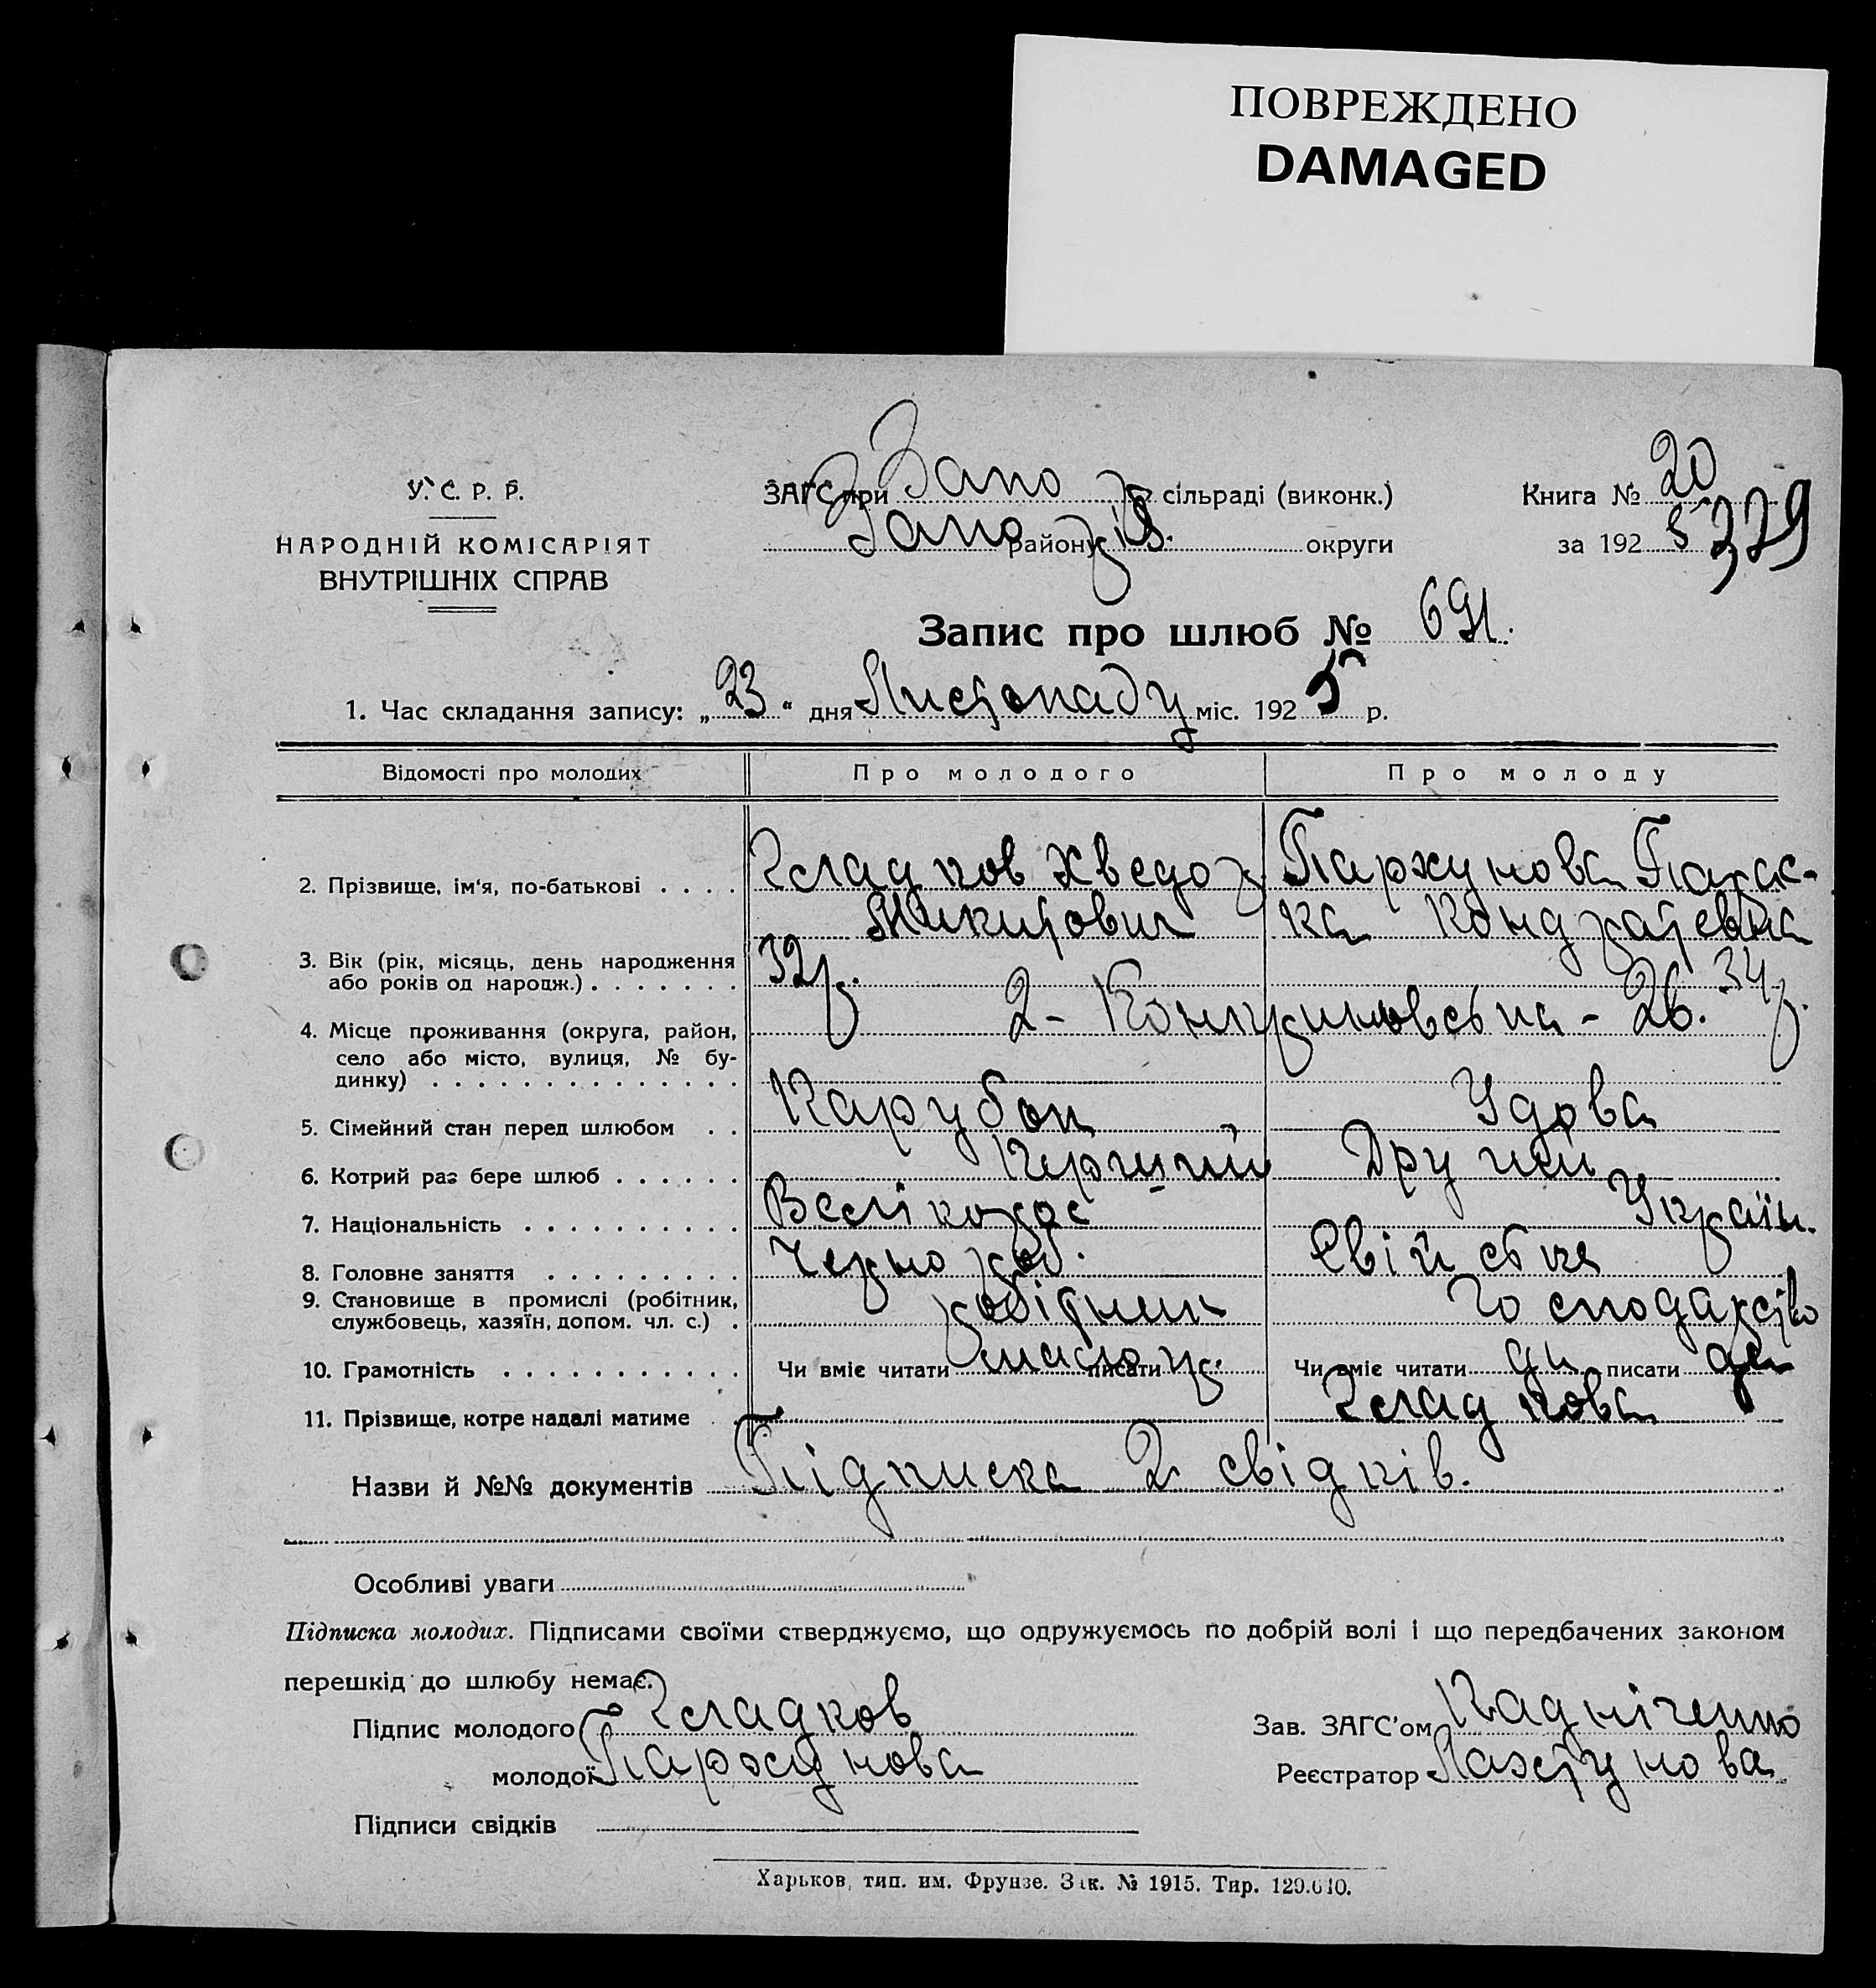 ПОВРЕЖДЕНО
DAMAGED
У. С. Р. Р.
НАРОДНІЙ КОМІСАРІЯТ
ВНУТРІШНІХ СПРАВ
ЗАГС при Запо сільраді (виконк.)
Запо району округи
Книга № 20
за 192 5 329
Запис про шлюб № 691.
1. Час складання запису: „23“ дня Листопаду міс. 1925 р.
Відомості про молодих Про молодого Про молоду
2. Прізвище, ім'я, по-батькові . . . . Гладков Хведор Пархунова Парас-
Микитович ка Кондратєвна
3. Вік (рік, місяць, день народження
або років од народж.) . . . . . . . 32 р. 34 р.
4. Місце проживання (округа, район, 2- - 26.
село або місто, вулиця, № бу-
динку) . . . . . . . . . . . . . .
5. Сімейний стан перед шлюбом . . Парубок Удова
6. Котрий раз бере шлюб . . . . . . Перший Другий
7. Національність . . . . . . . . . . Велікорос Україн.
8. Головне заняття . . . . . . . . . Чернороб. Свійське
9. Становище в промислі (робітник,
службовець, хазяїн, допом. чл. с.) . робітник Господарство
10. Грамотність . . . . . . . . . . . Чи вміє читати писати Чи вміє читати да писати да
11. Прізвище, котре надалі матиме . . Гладкова
Назви й №№ документів Підписка 2 свідків.
Особливі уваги
Підписка молодих. Підписами своїми стверджуємо, що одружуємось по добрій волі і що передбачених законом
перешкід до шлюбу немає.
Підпис молодого Гладков Зав. ЗАГС'ом
молодої Пархунова Реєстратор
Підписи свідків
Харьков, тип. им. Фрунзе. Зак. № 1915. Тир. 129.010.